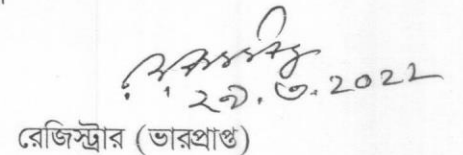 ২৯.৩.2022
রেজিস্ট্রার (ভারপ্রাপ্ত)